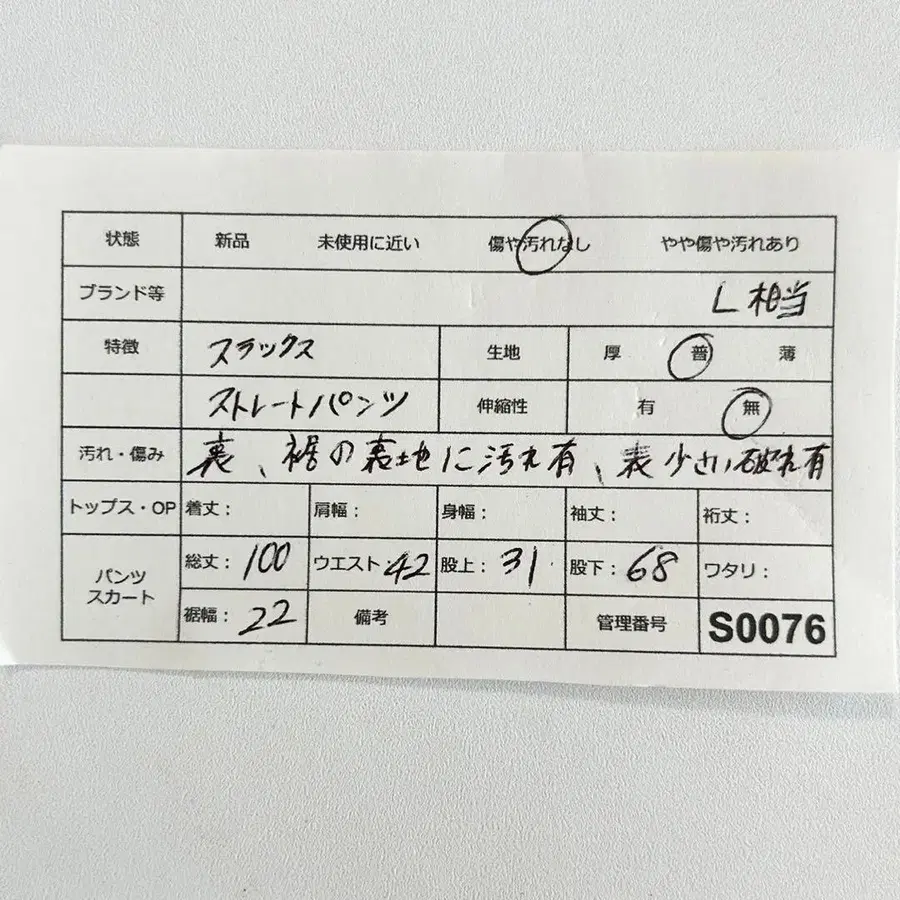 状態 新品 未使用に近い 傷や汚れなし やや傷や汚れあり
ブランド等 L相当
特徴 スラックス 生地 厚 普 薄
ストレートパンツ 伸縮性 有 無
汚れ・傷み 裏、裾の裏地に汚れ有、表少さい破れ有
トップス・OP 着丈: 肩幅: 身幅: 袖丈: 裄丈:
パンツ スカート 総丈: 100 ウエスト: 42 股上: 31 股下: 68 ワタリ:
裾幅: 22 備考 管理番号 S0076